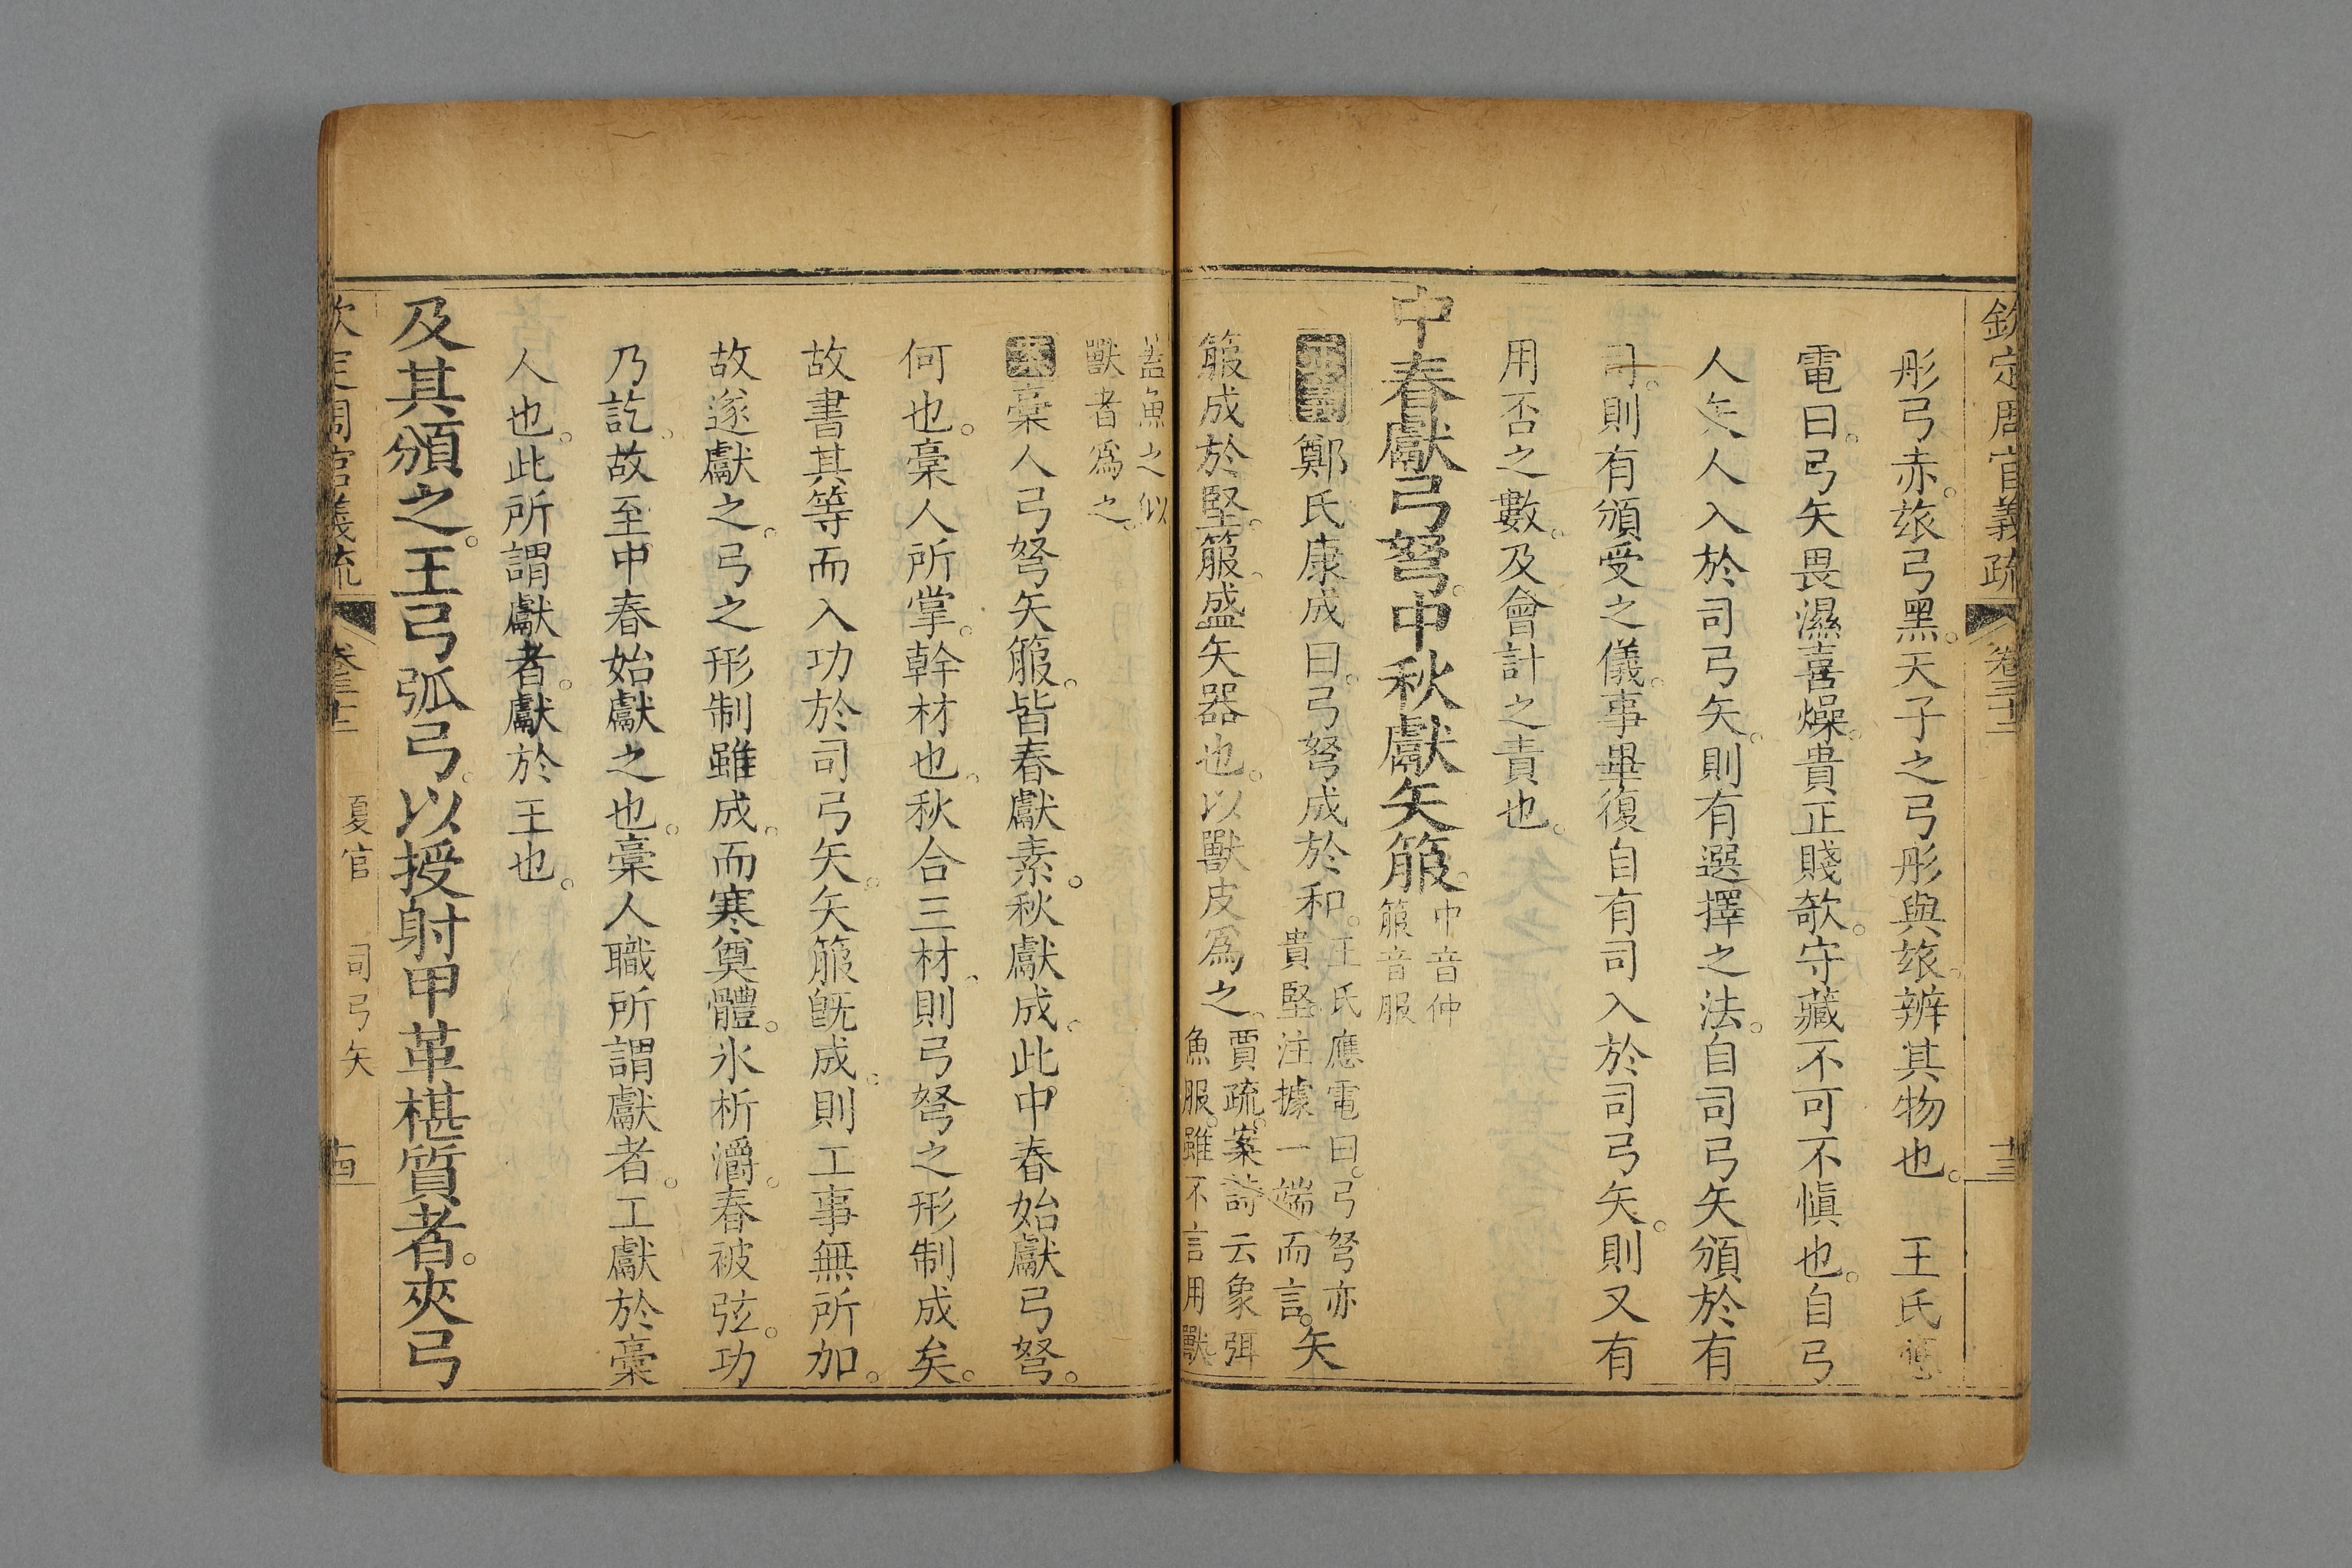 欽定周官義疏 卷三十二 十三
彤弓赤。玈弓黑。天子之弓彤與玈。辨其物也。 王氏應
電曰。弓矢畏濕喜燥。貴正賤欹。守藏不可不愼也。自弓
人矢人入於司弓矢。則有選擇之法。自司弓矢頒於有
司。則有頒受之儀。事畢復自有司入於司弓矢。則又有
用否之數。及會計之責也。
中春獻弓弩。中秋獻矢箙。中音仲 箙音服
鄭氏康成曰。弓弩成於和。王氏應電曰。弓弩亦貴堅。注據一端而言。矢
箙成於堅。箙。盛矢器也。以獸皮爲之。賈疏。案詩云象弭魚服。雖不言用獸。
蓋魚之似獸者爲之。
案 稾人弓弩矢箙。皆春獻素。秋獻成。此中春始獻弓弩。
何也。稾人所掌。幹材也。秋合三材、則弓弩之形制成矣。
故書其等而入功於司弓矢。矢箙旣成。則工事無所加。
故遂獻之。弓之形制雖成。而寒奠體。氷析灂。春被弦。功
乃訖。故至中春始獻之也。稾人職所謂獻者。工獻於稾
人也。此所謂獻者。獻於王也。
及其頒之。王弓弧弓。以授射甲革椹質者。夾弓
欽定周官義疏 卷三十二 夏官 司弓矢 十四